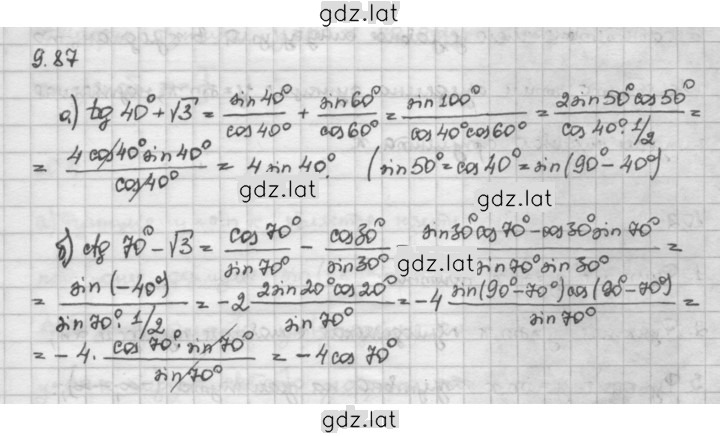 gdz.lat
9.87
а) tg 40° + √3 = sin 40° / cos 40° + sin 60° / cos 60° = sin 100° / cos 40° cos 60° = 2 sin 50° cos 50° / cos 40° · 1/2 =
= 4 cos 40° sin 40° / cos 40° = 4 sin 40°. (sin 50° = cos 40° = sin (90° - 40°)
gdz.lat
gdz.lat
б) ctg 70° - √3 = cos 70° / sin 70° - cos 30° / sin 30° = sin 30° cos 70° - cos 30° sin 70° / sin 70° sin 30° =
gdz.lat
= sin (-40°) / sin 70° · 1/2 = -2 2 sin 20° cos 20° / sin 70° = -4 sin (90° - 70°) cos (90° - 70°) / sin 70° =
= -4 · cos 70° · sin 70° / sin 70° = -4 cos 70°
gdz.lat